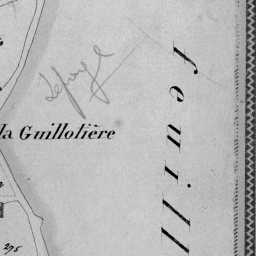 Lefaye
la Guillotière
feuill
275